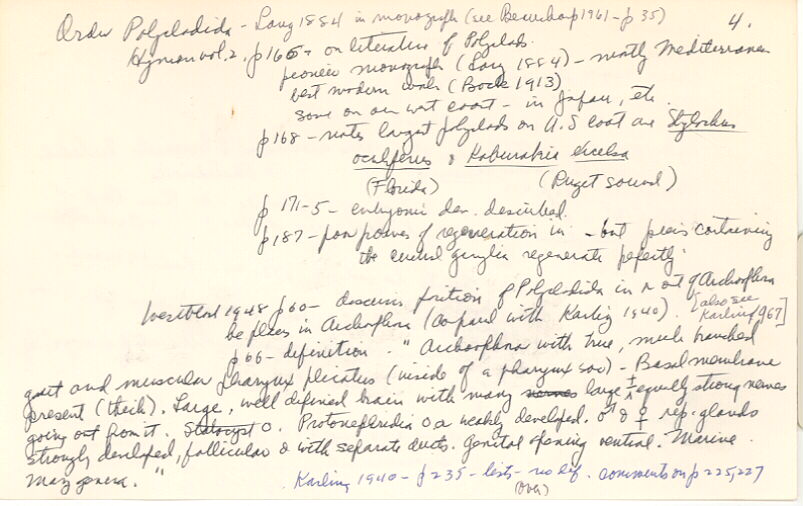 Order Polycladida - Lang 1884 in monograph (see Beauchamp 1961 - p 35) 4.
Hyman vol. 2. p 165+ on literature of Polyclads.
pioneer monograph (Lang 1884) - mostly Mediterranean
best modern work (Bock 1913)
some on our west coast - in Japan, etc.
p 168 - notes largest polyclads on U.S coast are Stylochus
oculiferus & Kaburakia excelsa
(Florida) (Puget Sound)
p 171-5 - embryonic dev. described.
p 187 - poor powers of regeneration in - but pieces containing
the cerebral ganglia regenerate perfectly.
Westblad 1948 p 60 - discusses position of Polycladida in or out of Archoophora
be places in Archoophora (compared with Karling 1940). [also see
Karling 1967]
p 66 - definition - "Archoophora with true, much branched
gut and muscular pharynx plicatus (inside of a pharynx sac) - Basal membrane
present (thick). Large, well defined brain with many nerves large ± equally strong nerves
going out from it. Statocyst O. Protonephridia O or weakly developed. ♂ & ♀ rep. glands
strongly developed, follicular & with separate ducts. Genital opening ventral. Marine.
Many genera. "
Karling 1940 - p 235 - lists - no dif. comments on p 225, 227
(over)